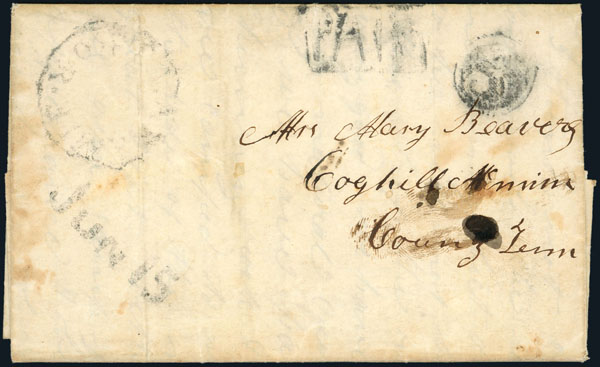 PAID
Mrs Mary Beavers
Coghill McMinn
County Tenn
Jun 15